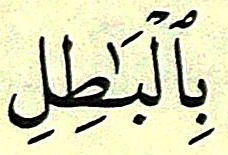 بِٱلْبَٰطِلِ